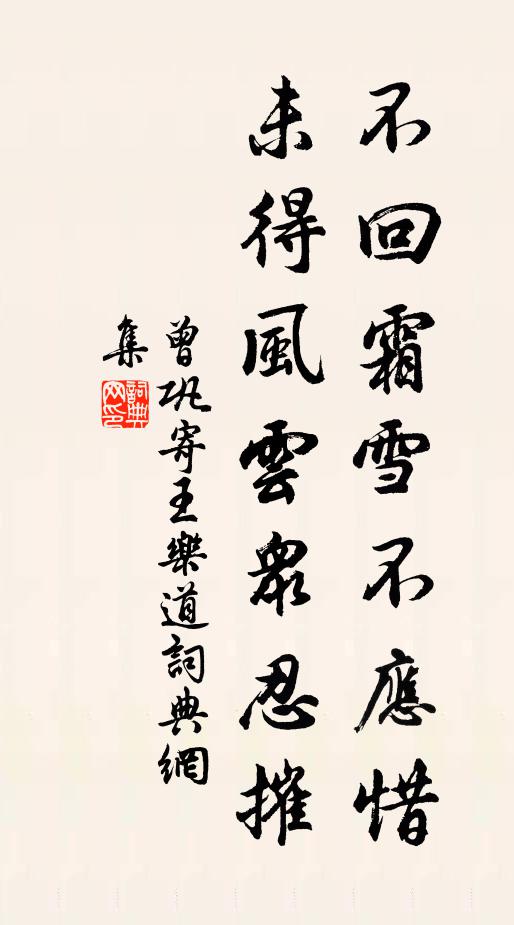 不回霜雪不應惜
未得風雲衆忍摧
曾巩寄王樂道詞典網
集
詞典
网印